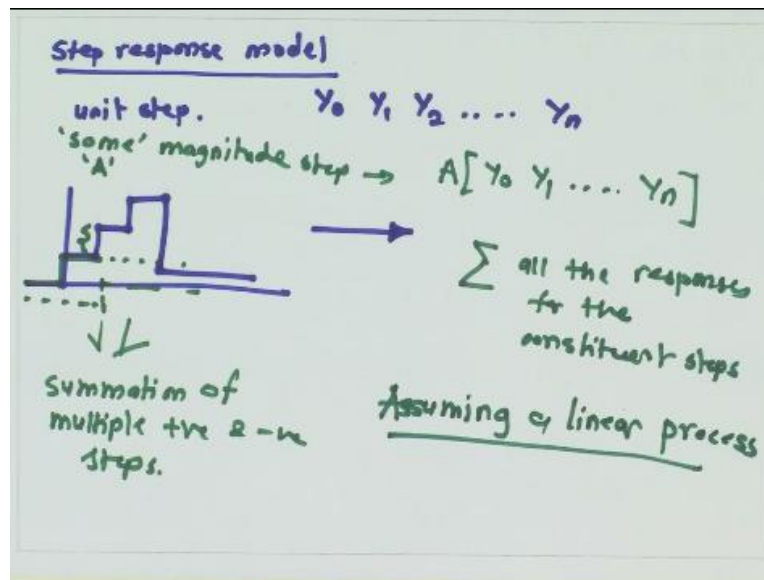 Step response model
unit step. Y0 Y1 Y2 .... Yn
'some' magnitude step → A[Y0 Y1 .... Yn]
'A'
∑ all the responses
for the
constituent steps
summation of
multiple +ve & -ve
steps.
Assuming a linear process